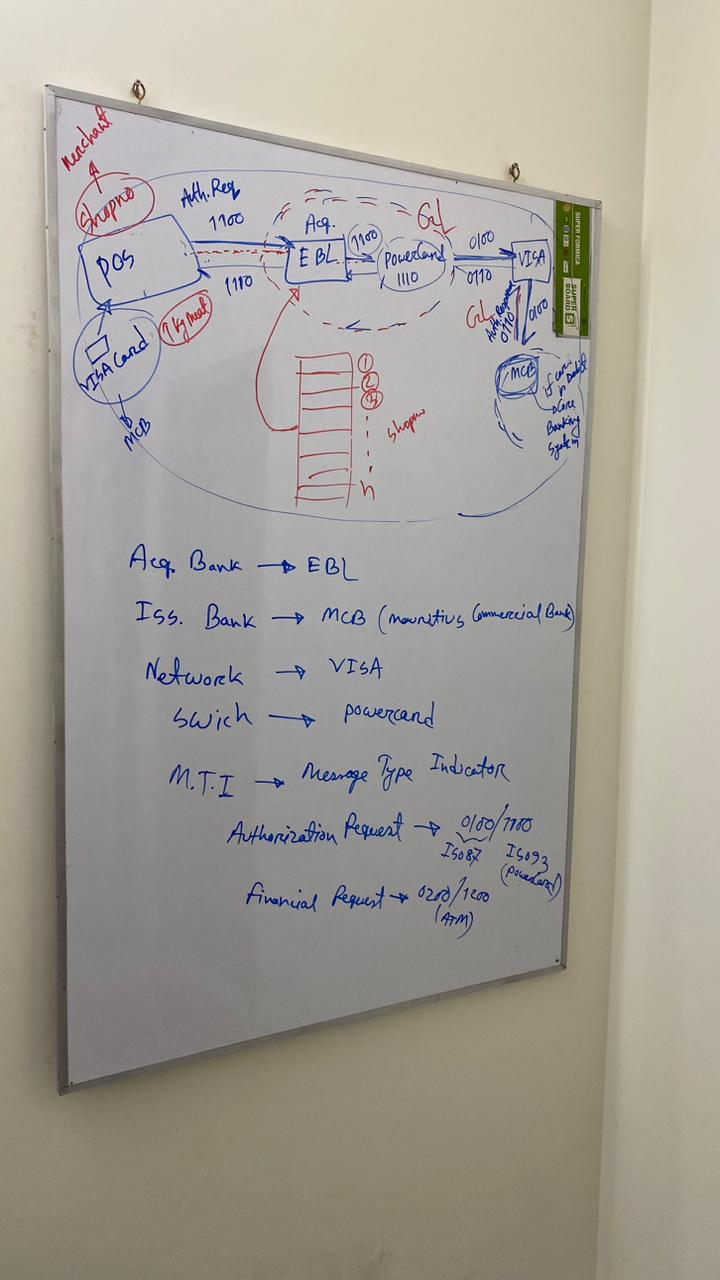 Merchant
Shopno
POS
Auth. Req
1100
1110
VISA Card
MCB
1 kg meat
Acq.
EBL
1100
GL
Powercard
1110
0100
0110
VISA
GL
Auth. Response
0110
0100
MCB
if card
is Debit
Core
Banking
System
1
2
3
n
Shopno
SUPER FORMICA
SUPER
BOARD
Acq. Bank → EBL
Iss. Bank → MCB (Mauritius Commercial Bank)
Network → VISA
Swich → Powercard
M.T.I → Message Type Indicator
Authorization Request → 0100/1100
ISO87 ISO93
(Powercard)
Financial Request → 0200/1200
(ATM)